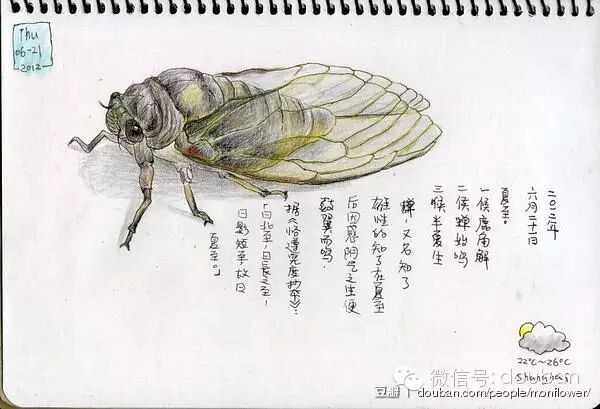 Thu
06-21
2012
二〇一二年
六月二十一日
夏至。
一候鹿角解
二候蝉始鸣
三候半夏生
蝉,又名知了
雄性的知了在夏至
后因感阴气之生便
鼓翼而鸣。
据《恪遵宪度抄本》:
「日北至,日長之至,
日影短至,故曰
夏至。」
22°C~26°C
Shanghai
微信号: douban
豆瓣 douban.com/people/monflower/